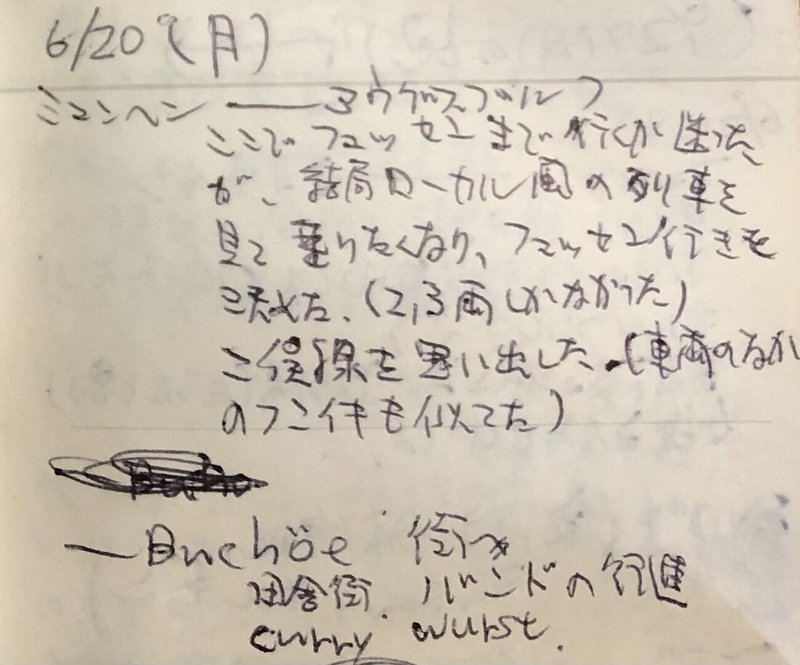 6/20(月)
ミュンヘン ―― アウグスブルク
ここでフュッセンまで行くか迷った
が、結局ローカル風の列車を
見て乗りたくなり、フュッセン行きを
決めた.(2,3両しかなかった)
二俣線を思い出した.(車両のなか
のフンイキも似てた)
―Buchöe 街つ
田舎街. バンドの行進
curry wurst.